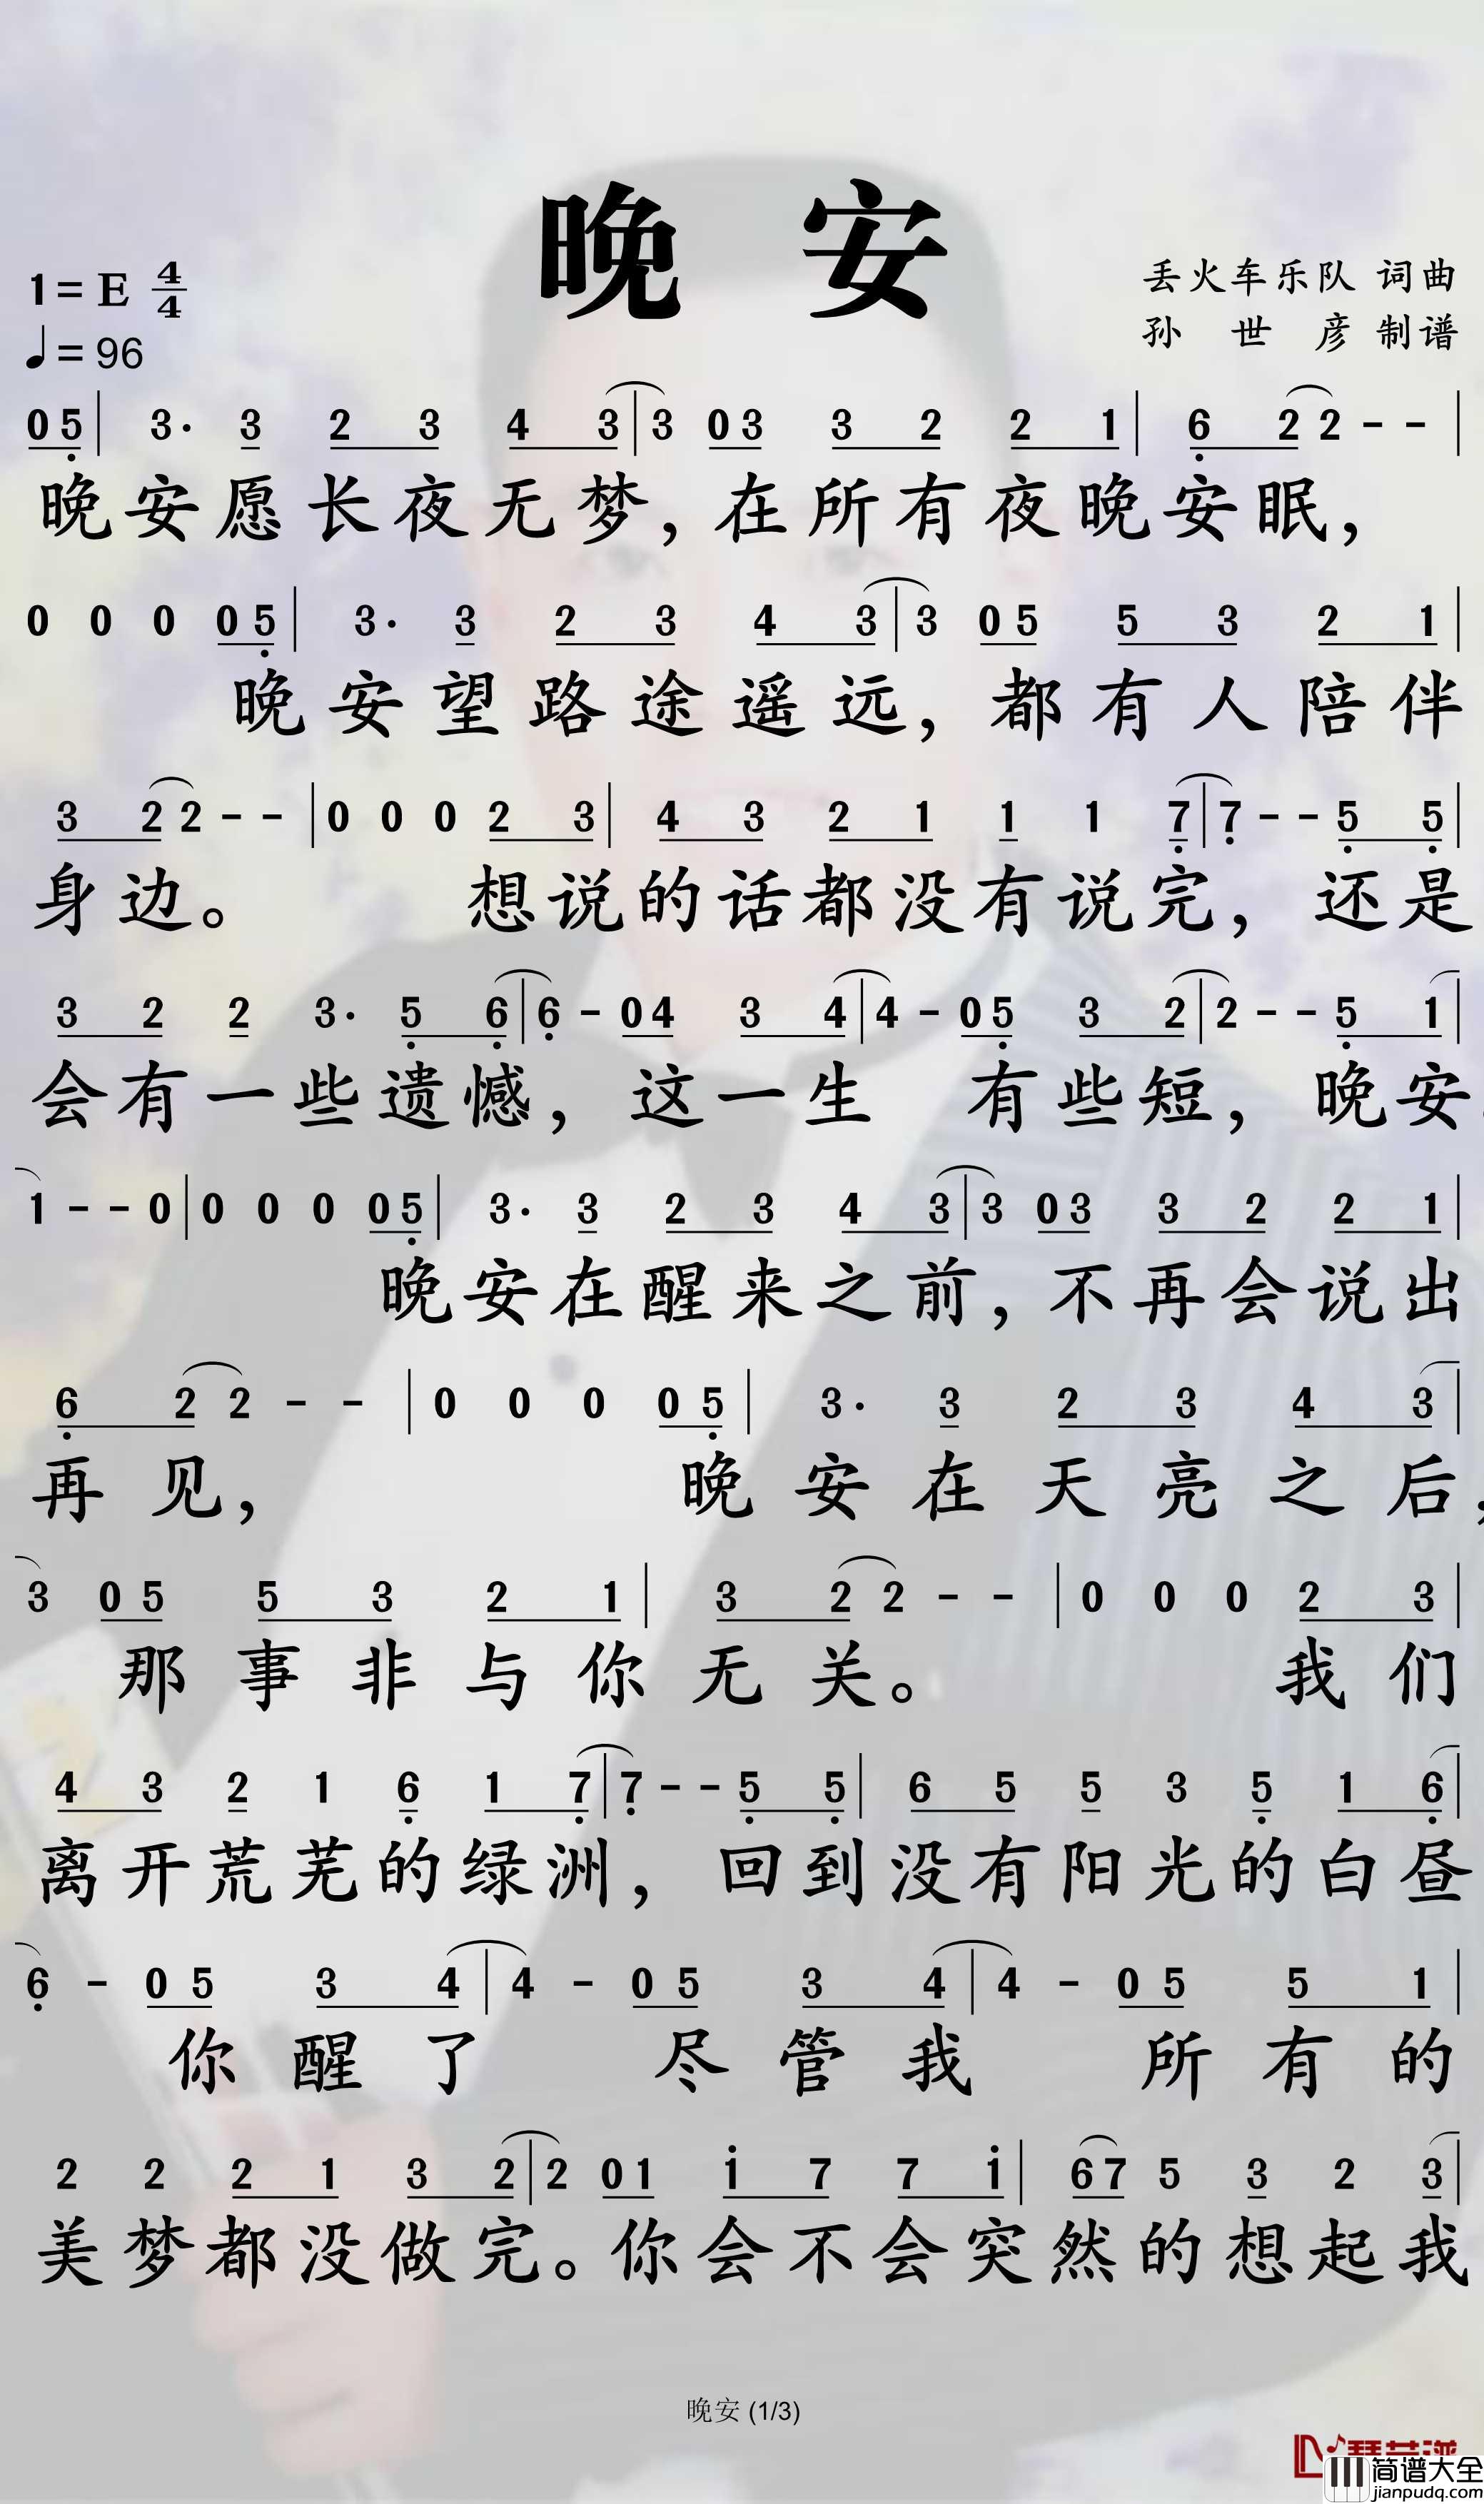 晚 安
1=E 4/4
♩=96
丢火车乐队 词曲
孙 世 彦 制谱
05| 3· 3 2 3 4 3|3 03 3 2 2 1| 6 2 2 - -|
晚安愿长夜无梦，在所有夜晚安眠，
0 0 0 05| 3· 3 2 3 4 3|3 05 5 3 2 1|
晚安望路途遥远，都有人陪伴
3 2 2 - -|0 0 0 2 3| 4 3 2 1 1 1 7|7 - - 5 5|
身边。 想说的话都没有说完，还是
3 2 2 3· 5 6|6 - 04 3 4|4 - 05 3 2|2 - - 5 1|
会有一些遗憾，这一生 有些短，晚安.
1 - - 0|0 0 0 05| 3· 3 2 3 4 3|3 03 3 2 2 1|
晚安在醒来之前，不再会说出
6 2 2 - -|0 0 0 05| 3· 3 2 3 4 3|
再见， 晚安在天亮之后，
3 05 5 3 2 1| 3 2 2 - -|0 0 0 2 3|
那事非与你无关。 我们
4 3 2 1 6 1 7|7 - - 5 5| 6 5 5 3 5 1 6|
离开荒芜的绿洲，回到没有阳光的白昼
6 - 05 3 4|4 - 05 3 4|4 - 05 5 1|
你醒了 尽管我 所有的
2 2 2 1 3 2|2 01 1 7 7 1| 67 5 3 2 3|
美梦都没做完。你会不会突然的想起我
晚安 (1/3)
简谱大全
jianpudq.com